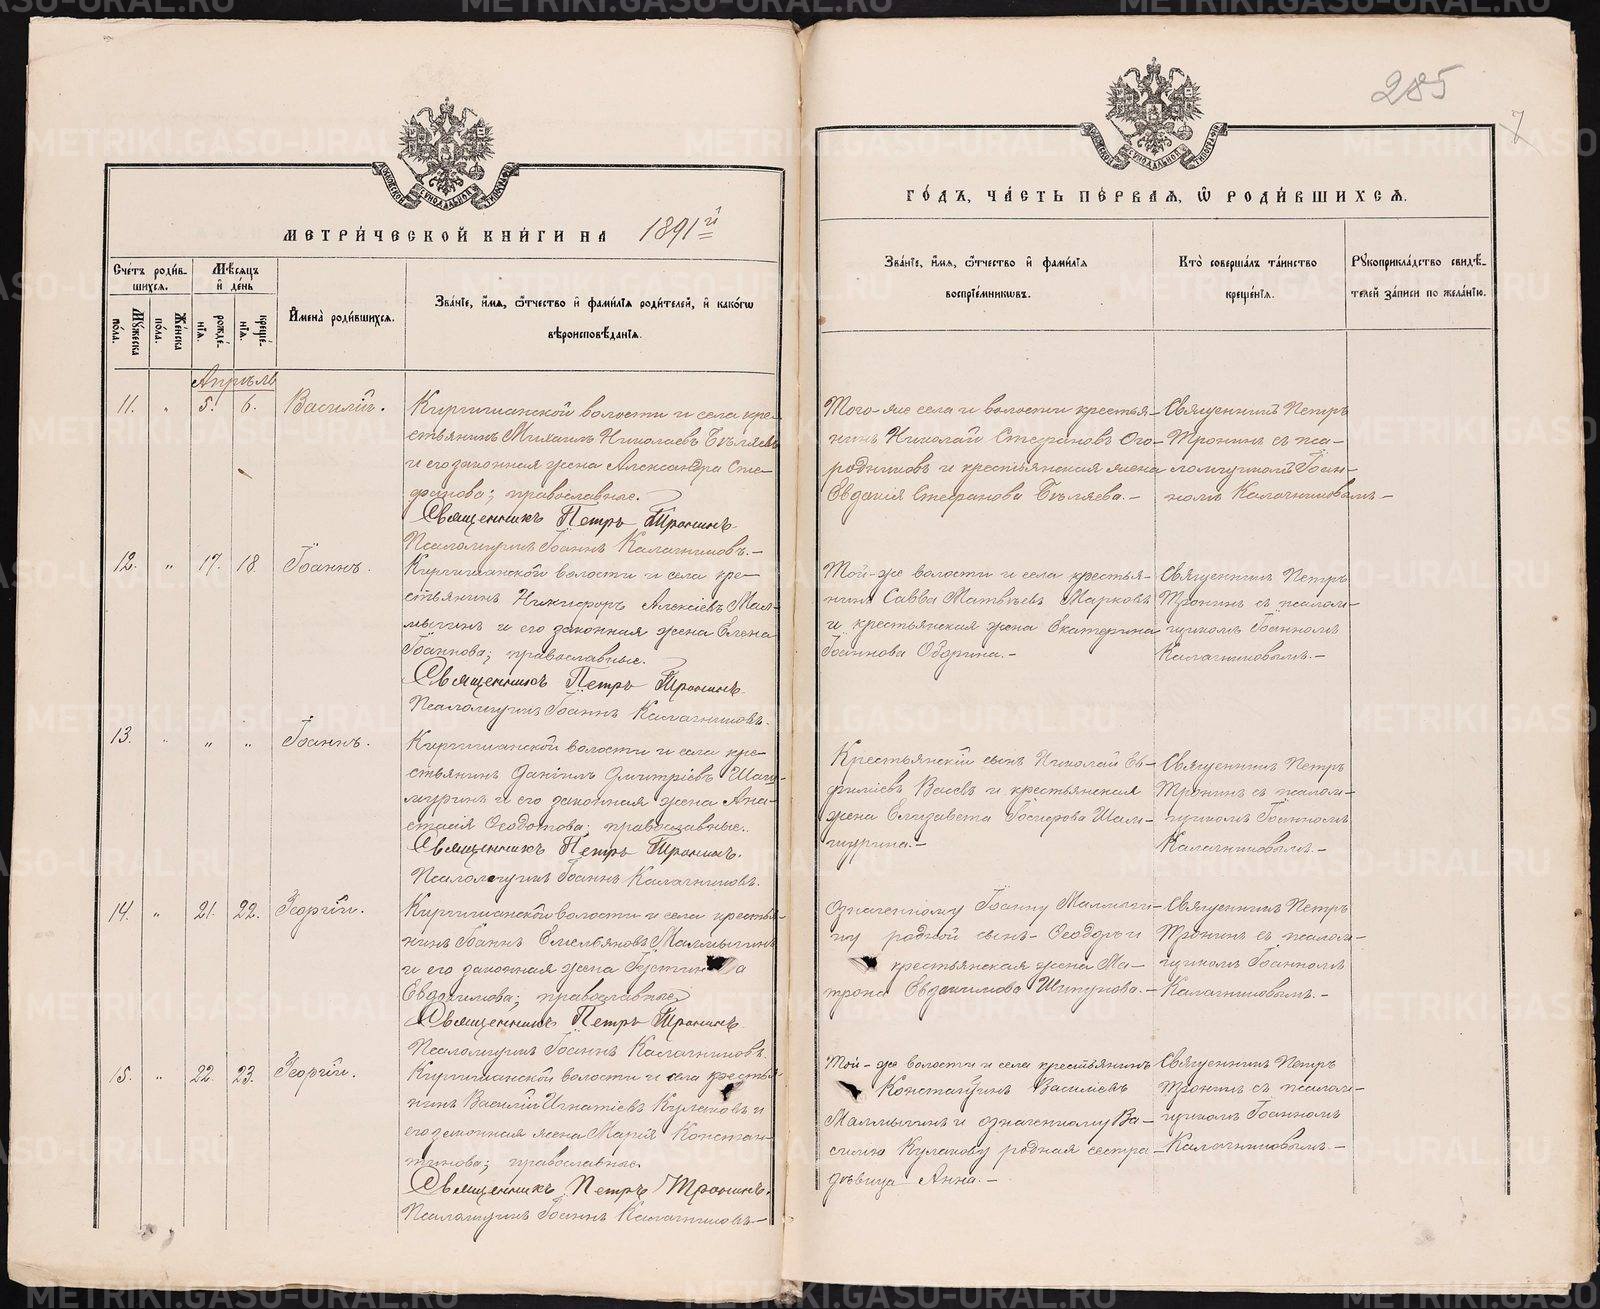 285
7
МЕТРИЧЕСКОЙ КНИГИ НА 1891й
Счетъ родившихся.
Мужеска пола.
Женска пола.
Мѣсяцъ и день
рожденія.
крещенія.
Имена родившихся.
Званіе, имя, отчество и фамилія родителей, и какогѡ
вѣроисповѣданія.
Апрѣль
11. " 5. 6. Василій.
Киргишанской волости и села кре-
стьянинъ Михаилъ Николаевъ Бѣляевъ
и его законная жена Александра Сте-
фанова; православные.
Священникъ Петръ Тронинъ.
Псаломщикъ Іоаннъ Калачниковъ.-
12. " 17. 18. Іоаннъ.
Киргишанской волости и села кре-
стьянинъ Никифоръ Алексіевъ Мал-
мыгинъ и его законная жена Елена
Іоаннова; православные.
Священникъ Петръ Тронинъ.
Псаломщикъ Іоаннъ Калачниковъ.
13. " " " Іоаннъ.
Киргишанской волости и села кре-
стьянинъ Даніилъ Димитріевъ
и его законная жена Ана-
стасія Ѳеодотова; православные.
Священникъ Петръ Тронинъ.
Псаломщикъ Іоаннъ Калачниковъ.
14. " 21. 22. Георгій.
Киргишанской волости и села крестья-
нинъ Іоаннъ Емельяновъ Малмыгинъ
и его законная жена
Евдокимова; православные.
Священникъ Петръ Тронинъ.
Псаломщикъ Іоаннъ Калачниковъ.
15. " 22. 23. Георгій.
Киргишанской волости и села крестья-
нинъ Василій Игнатіевъ Кулаковъ и
его законная жена Марія Констан-
тинова; православные.
Священникъ Петръ Тронинъ.
Псаломщикъ Іоаннъ Калачниковъ-
ГОДЪ, ЧАСТЬ ПЕРВАЯ, Ѡ РОДИВШИХСЯ.
Званіе, имя, ѿчество и фамилія
воспріемникѡвъ.
Кто совершалъ таинство
крещенія.
Рꙋкоприкладство свидѣ-
телей записи по желанію.
Того-же села и волости крестья-
нинъ Николай Стефановъ Ого-
родниковъ и крестьянская жена
Евдокія Стефанова Бѣляева.-
Священникъ Петръ
Тронинъ съ пса-
ломщикомъ Іоан-
номъ Калачниковымъ.-
Той-же волости и села крестья-
нинъ Савва Матвѣевъ Марковъ
и крестьянская жена Екатерина
Іоаннова Оборина.-
Священникъ Петръ
Тронинъ съ псалом-
щикомъ Іоанномъ
Калачниковымъ.-
Крестьянскій сынъ Николай Ев-
фиміевъ и крестьянская
жена Елизавета
Священникъ Петръ
Тронинъ съ псалом-
щикомъ Іоанномъ
Калачниковымъ.-
Означенному Іоанну Малмыги-
ну родной сынъ- Ѳеодоръ и
крестьянская жена Ма-
трона Евдокимова Шипунова.-
Священникъ Петръ
Тронинъ съ псалом-
щикомъ Іоанномъ
Калачниковымъ.-
Той-же волости и села крестьянинъ
Константинъ Василіевъ
Малмыгинъ и означенному Ва-
силію Кулакову родная сестра
дѣвица Анна.-
Священникъ Петръ
Тронинъ съ псалом-
щикомъ Іоанномъ
Калачниковымъ.-
METRIKI.GASO-URAL.RU